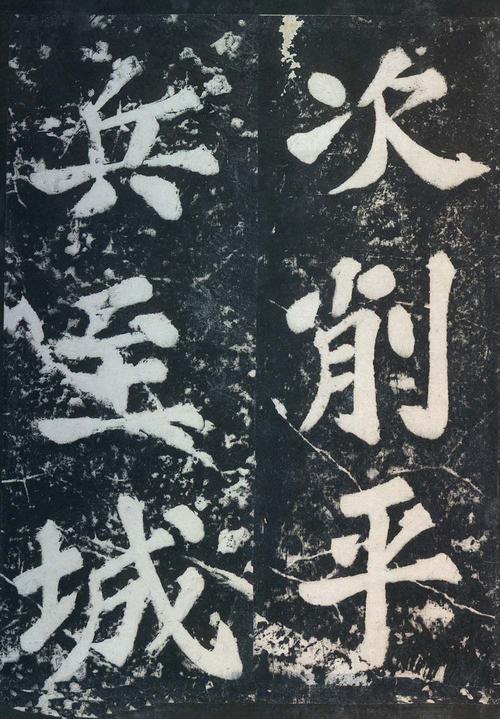 次削平
兵至城